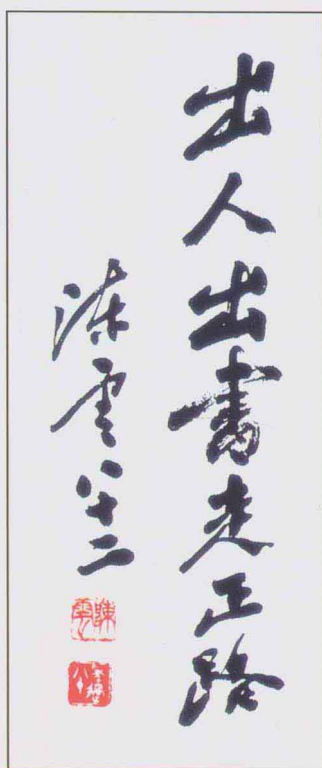 出人出書走正路
陈雲八十二
陳雲